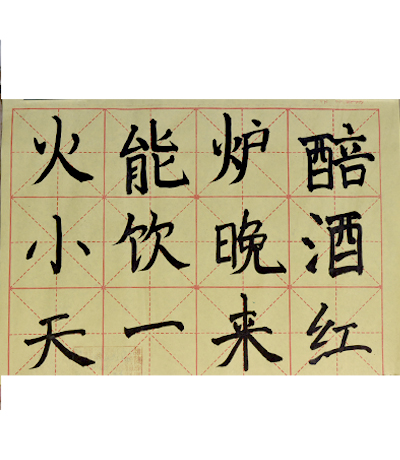 醅酒红
炉晚来
能饮一
火小天